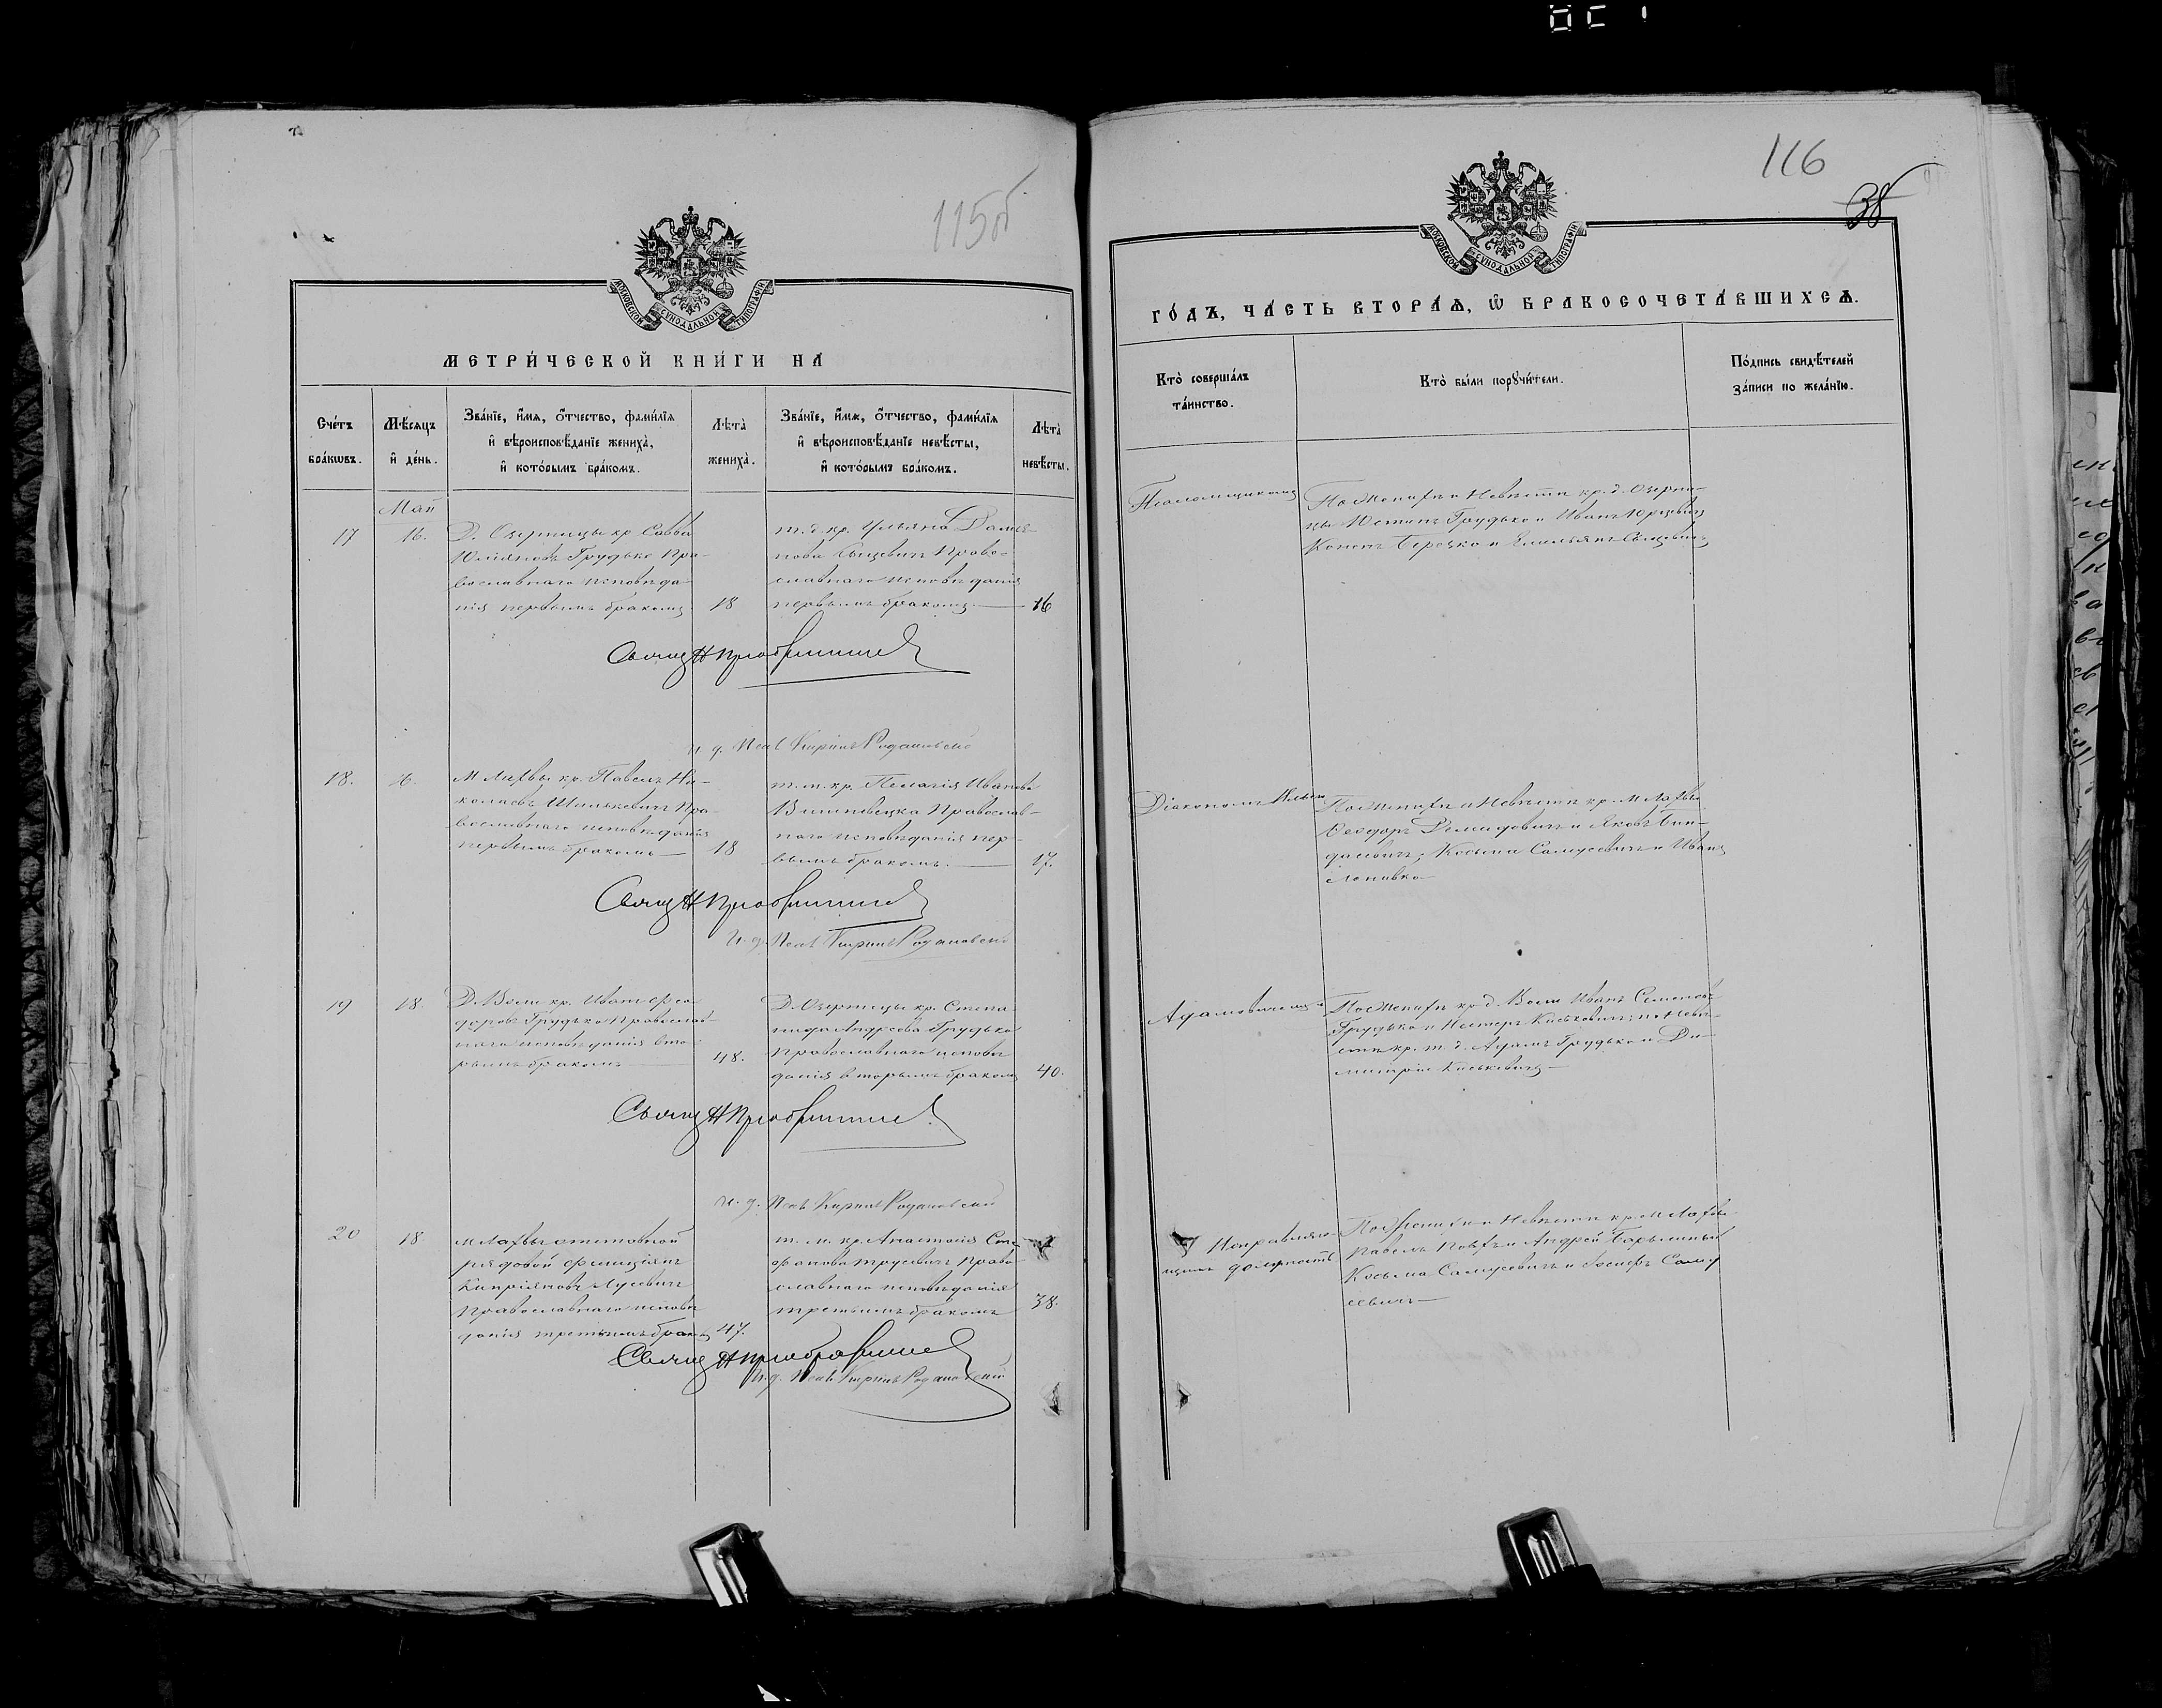 115об
МОСКОВСКОЙ СѴНОДАЛЬНОЙ ТИПОГРАФІИ
МЕТРИ́ЧЕСКОЙ КНИ́ГИ НА
Сче́тъ бра́кѡвъ.
Мѣ́сяцъ и҆ де́нь.
Зва́нїе, и҆́мя, ѻ҆́тчество, фами́лїя и҆ вѣроисповѣ́данїе жениха̀, и҆ кото́рымъ бра́комъ.
Лѣта̀ жениха̀.
Зва́нїе, и҆́мя, ѻ҆́тчество, фами́лїя и҆ вѣроисповѣ́данїе невѣ́сты, и҆ кото́рымъ бра́комъ.
Лѣта̀ невѣ́сты.
Май
17
16.
Д. Озерницы кр Савва
Грудько Пра-
вославнаго исповѣда-
нія первымъ бракомъ
18
т. д. кр. Ульяна
Православнаго исповѣданія
первымъ бракомъ
16
Свящ Н
и. д. Псал Родановскій
18.
16.
М Лахвы кр. Павелъ Ни-
колаевъ Шинкевичъ Пра-
вославнаго исповѣданія
первымъ бракомъ
18
т. м. кр. Пелагія Иванова
Вишневецка Православ-
наго исповѣданія пер-
вымъ бракомъ.
17.
Свящ Н
И. д. Псал Родановскій
19
18.
Д. Воли кр. Иванъ Ѳео-
доровъ Грудько Православ-
наго исповѣданія вто-
рымъ бракомъ
48.
Д. Озерницы кр. Степа-
нида Андреева Грудько
Православнаго исповѣ
данія вторымъ бракомъ
40.
Свящ Н
и. д. Псал Родановскій
20
18.
М Лахвы отставной
рядовой
Кипріяновъ Лусевичъ
Православнаго исповѣ
данія третьимъ бракомъ
47.
т. м. кр. Анастасія Сте-
фанова Трусевичъ Право-
славнаго исповѣданія
третьимъ бракомъ
38.
Свящ Н
И. д. Псал Родановскій
116
38
МОСКОВСКОЙ СѴНОДАЛЬНОЙ ТИПОГРАФІИ
ГО́ДЪ, ЧА́СТЬ ВТОРА́Ѧ, Ѡ҆ БРАКОСОЧЕТА́ВШИХСѦ.
Кто̀ соверша́лъ та́инство.
Кто̀ бы́ли порꙋчи́тели.
По́дпись свидѣ́телей за́писи по жела́нїю.
Псаломщикомъ
По Женихѣ и Невѣстѣ кр. д. Озерни-
цы Грудько и Иванъ
Кононъ Берецко и Емельянъ
Діакономъ
По Женихѣ и Невѣстѣ кр. М Лахвы
Ѳеодоръ Демидовичъ и Яковъ
Косьма Самусевичъ и Иванъ
Адамовичемъ и
По Женихѣ кр д. Воли Иванъ Семеновъ
Грудько и Нестеръ Киськовичъ; по Невѣ-
стѣ кр. т. д. Адамъ Грудько и Ди-
митрій Киськевичъ
Исправляю-
щимъ должность
По Женихѣ и Невѣстѣ кр. М Лахвы
Павелъ и Андрей
Косьма Самусевичъ и Іосифъ Саму
севичъ